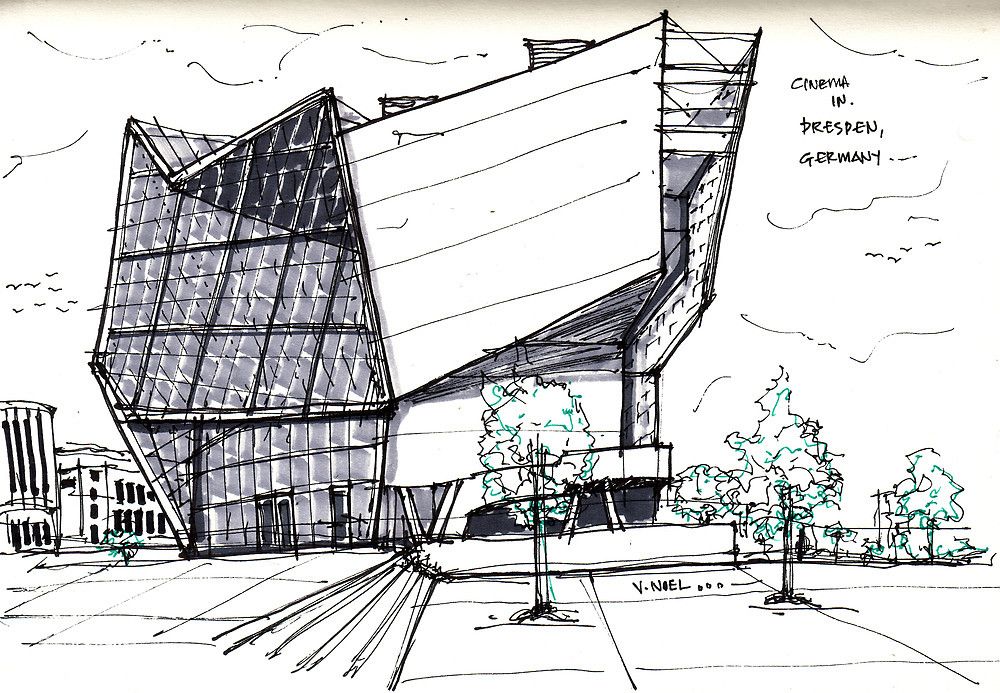 CINEMA
IN.
DRESDEN,
GERMANY...
V. NOEL ...